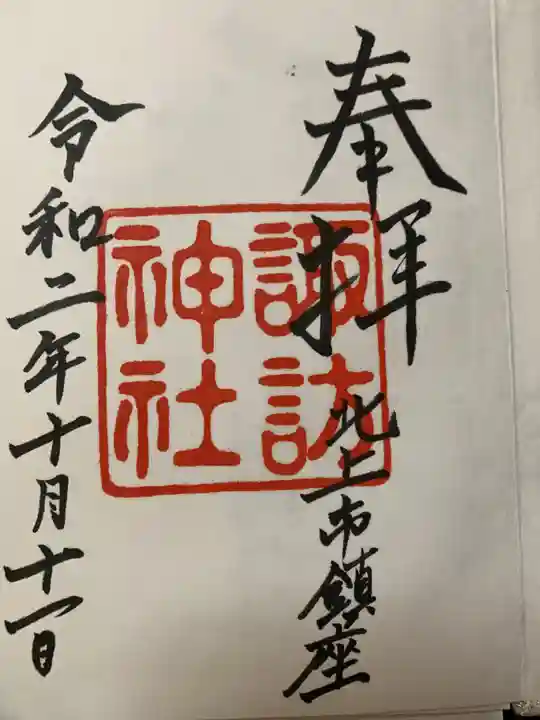 奉拝
北上市鎮座
諏訪
神社
令和二年十月十一日